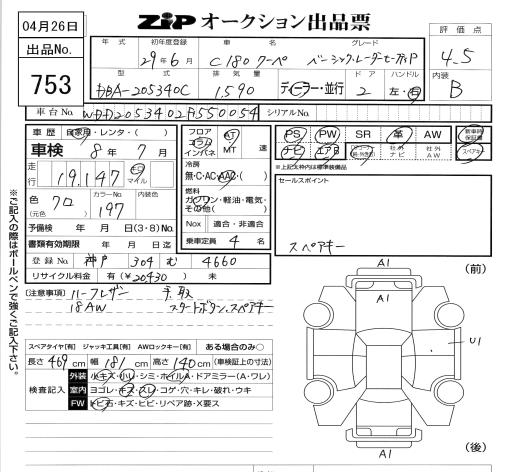 04月26日
出品No.
753
ZIP オークション出品票
年 式 初年度登録 車 名 グレード
29年6月 C180クーペ ベーシックレーダーセーフティP
評 価 点
4.5
内装
B
型 式 排 気 量 ドア ハンドル
DBA-205340C 1,590 ディーラー・並行 2 左・右
車台No. WDD2053402F550054 シリアルNo.
車 歴 自家用・レンタ・( )
車検 8年 7月
走行 19,147 キロ マイル
色 クロ (元色) カラーNo. 197 内装色
予備検 年 月 日(3・8)No.
書類有効期限 年 月 日迄
登録No. 神戸 304 む 4660
リサイクル料金 有(¥20430) 未
フロア コラム インパネ AT MT 速
冷房
無・C・AC・AAC・( )
燃料
ガソリン・軽油・電気・その他( )
Nox 適合・非適合
乗車定員 4 名
PS PW SR 革 AW 新車時保証書
ナビ エアB 社外ナビ 社外AW スペアキー
※上記太枠内は標準装備品
セールスポイント
スペアキー
(注意事項) ハーフレザー 手、取
18AW スタートボタン、スペアキー
スペアタイヤ[有] ジャッキ工具[有] AWロックキー[有] ある場合のみ○
長さ 469 cm 幅 181 cm 高さ 140 cm (車検証上の寸法)
検査記入
外装 小キズ・小ヘコ・シミ・ホイルA・ドアミラー(A・ワレ)
室内 ヨゴレ・キズ・スレ・コゲ・穴・キレ・破れ・ウキ
FW トビ石・キズ・ヒビ・リペア跡・X要ス
※ご記入の際はボールペンで強くご記入下さい。
A1
(前)
A1
U1
A1
(後)